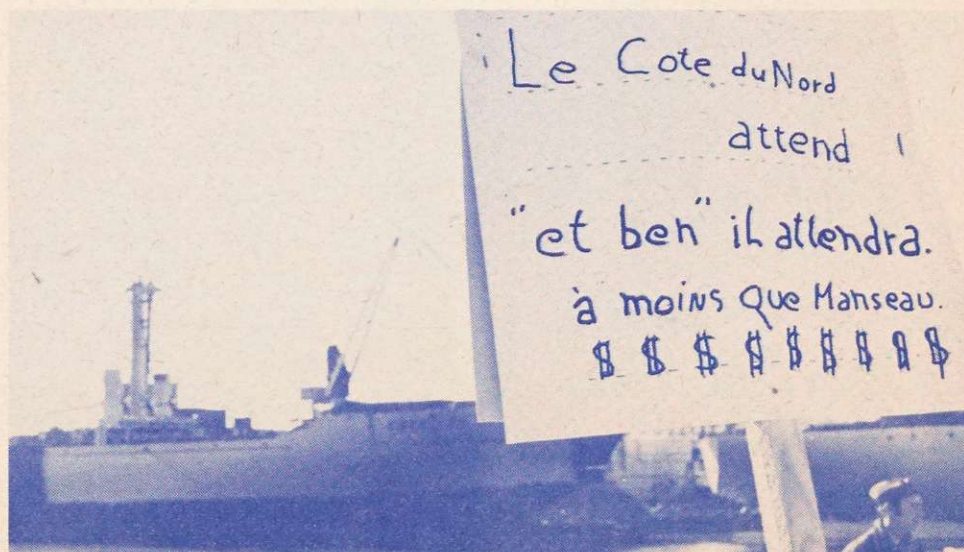 Le Cote du Nord
attend
"et ben" il attendra.
à moins que Manseau.
$ $ $ $ $ $ $ $ $